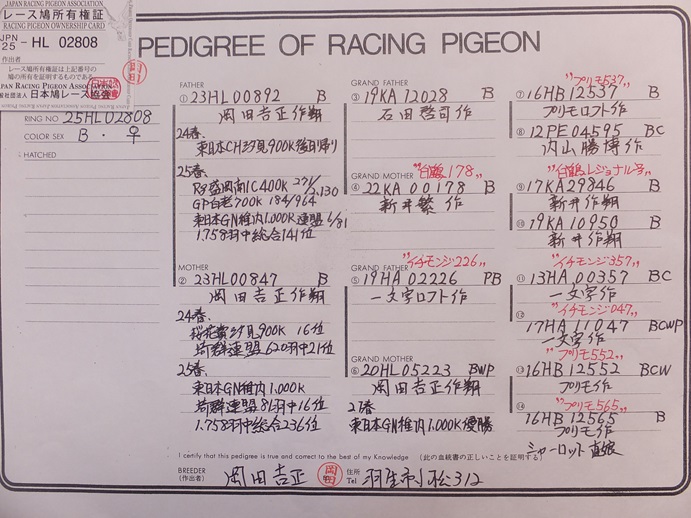 JAPAN RACING PIGEON ASSOCIATION
レース鳩所有権証
RACING PIGEON OWNERSHIP CARD
JPN
25 - HL 02808
作出者
レース鳩所有権証は上記番号の
鳩の所有を証明するものである
JAPAN RACING PIGEON ASSOCIATION
日本鳩レース協会
PEDIGREE OF RACING PIGEON
RING NO 25HL02808
COLOR SEX B・♀
HATCHED
FATHER
① 23HL00892 B
岡田吉正作翔
24春.
東日本CH汐見900K後日帰り
25春.
GP白老700K 184/964
東日本GN稚内1.000K連盟6/81
1.758羽中総合141位
MOTHER
② 23HL00847 B
岡田吉正作翔
24春.
桜花賞汐見900K 16位
埼群連盟620羽中21位
25春.
東日本GN稚内1.000K
埼群連盟81羽中16位
1.758羽中総合236位
GRAND FATHER
③ 19KA12028 B
石田啓司作
GRAND MOTHER "白鶴178"
④ 22KA00178 B
新井繁作
GRAND FATHER "イチモンジ226"
⑤ 19HA02226 PB
一文字ロフト作
GRAND MOTHER
⑥ 20HL05223 BWP
岡田吉正作翔
東日本GN稚内1.000K優勝
"プリモ537"
⑦ 16HB12537 B
プリモロフト作
⑧ 12PE04595 BC
内山勝博作
"白鶴レジョナル号"
⑨ 17KA29846 B
新井作翔
⑩ 19KA10950 B
新井作翔
"イチモンジ357"
⑪ 13HA00357 BC
一文字作
"イチモンジ047"
⑫ 17HA11047 BCWP
一文字作
"プリモ552"
⑬ 16HB12552 BCW
プリモ作
"プリモ565"
⑭ 16HB12565 B
プリモ作
シャーロット直娘
I certify that this pedigree is true and correct to the best of my Knowledge (此の血統書の正しいことを証明する)
BREEDER
(作出者) 岡田吉正 岡田 住所
Tel 羽生市小松312